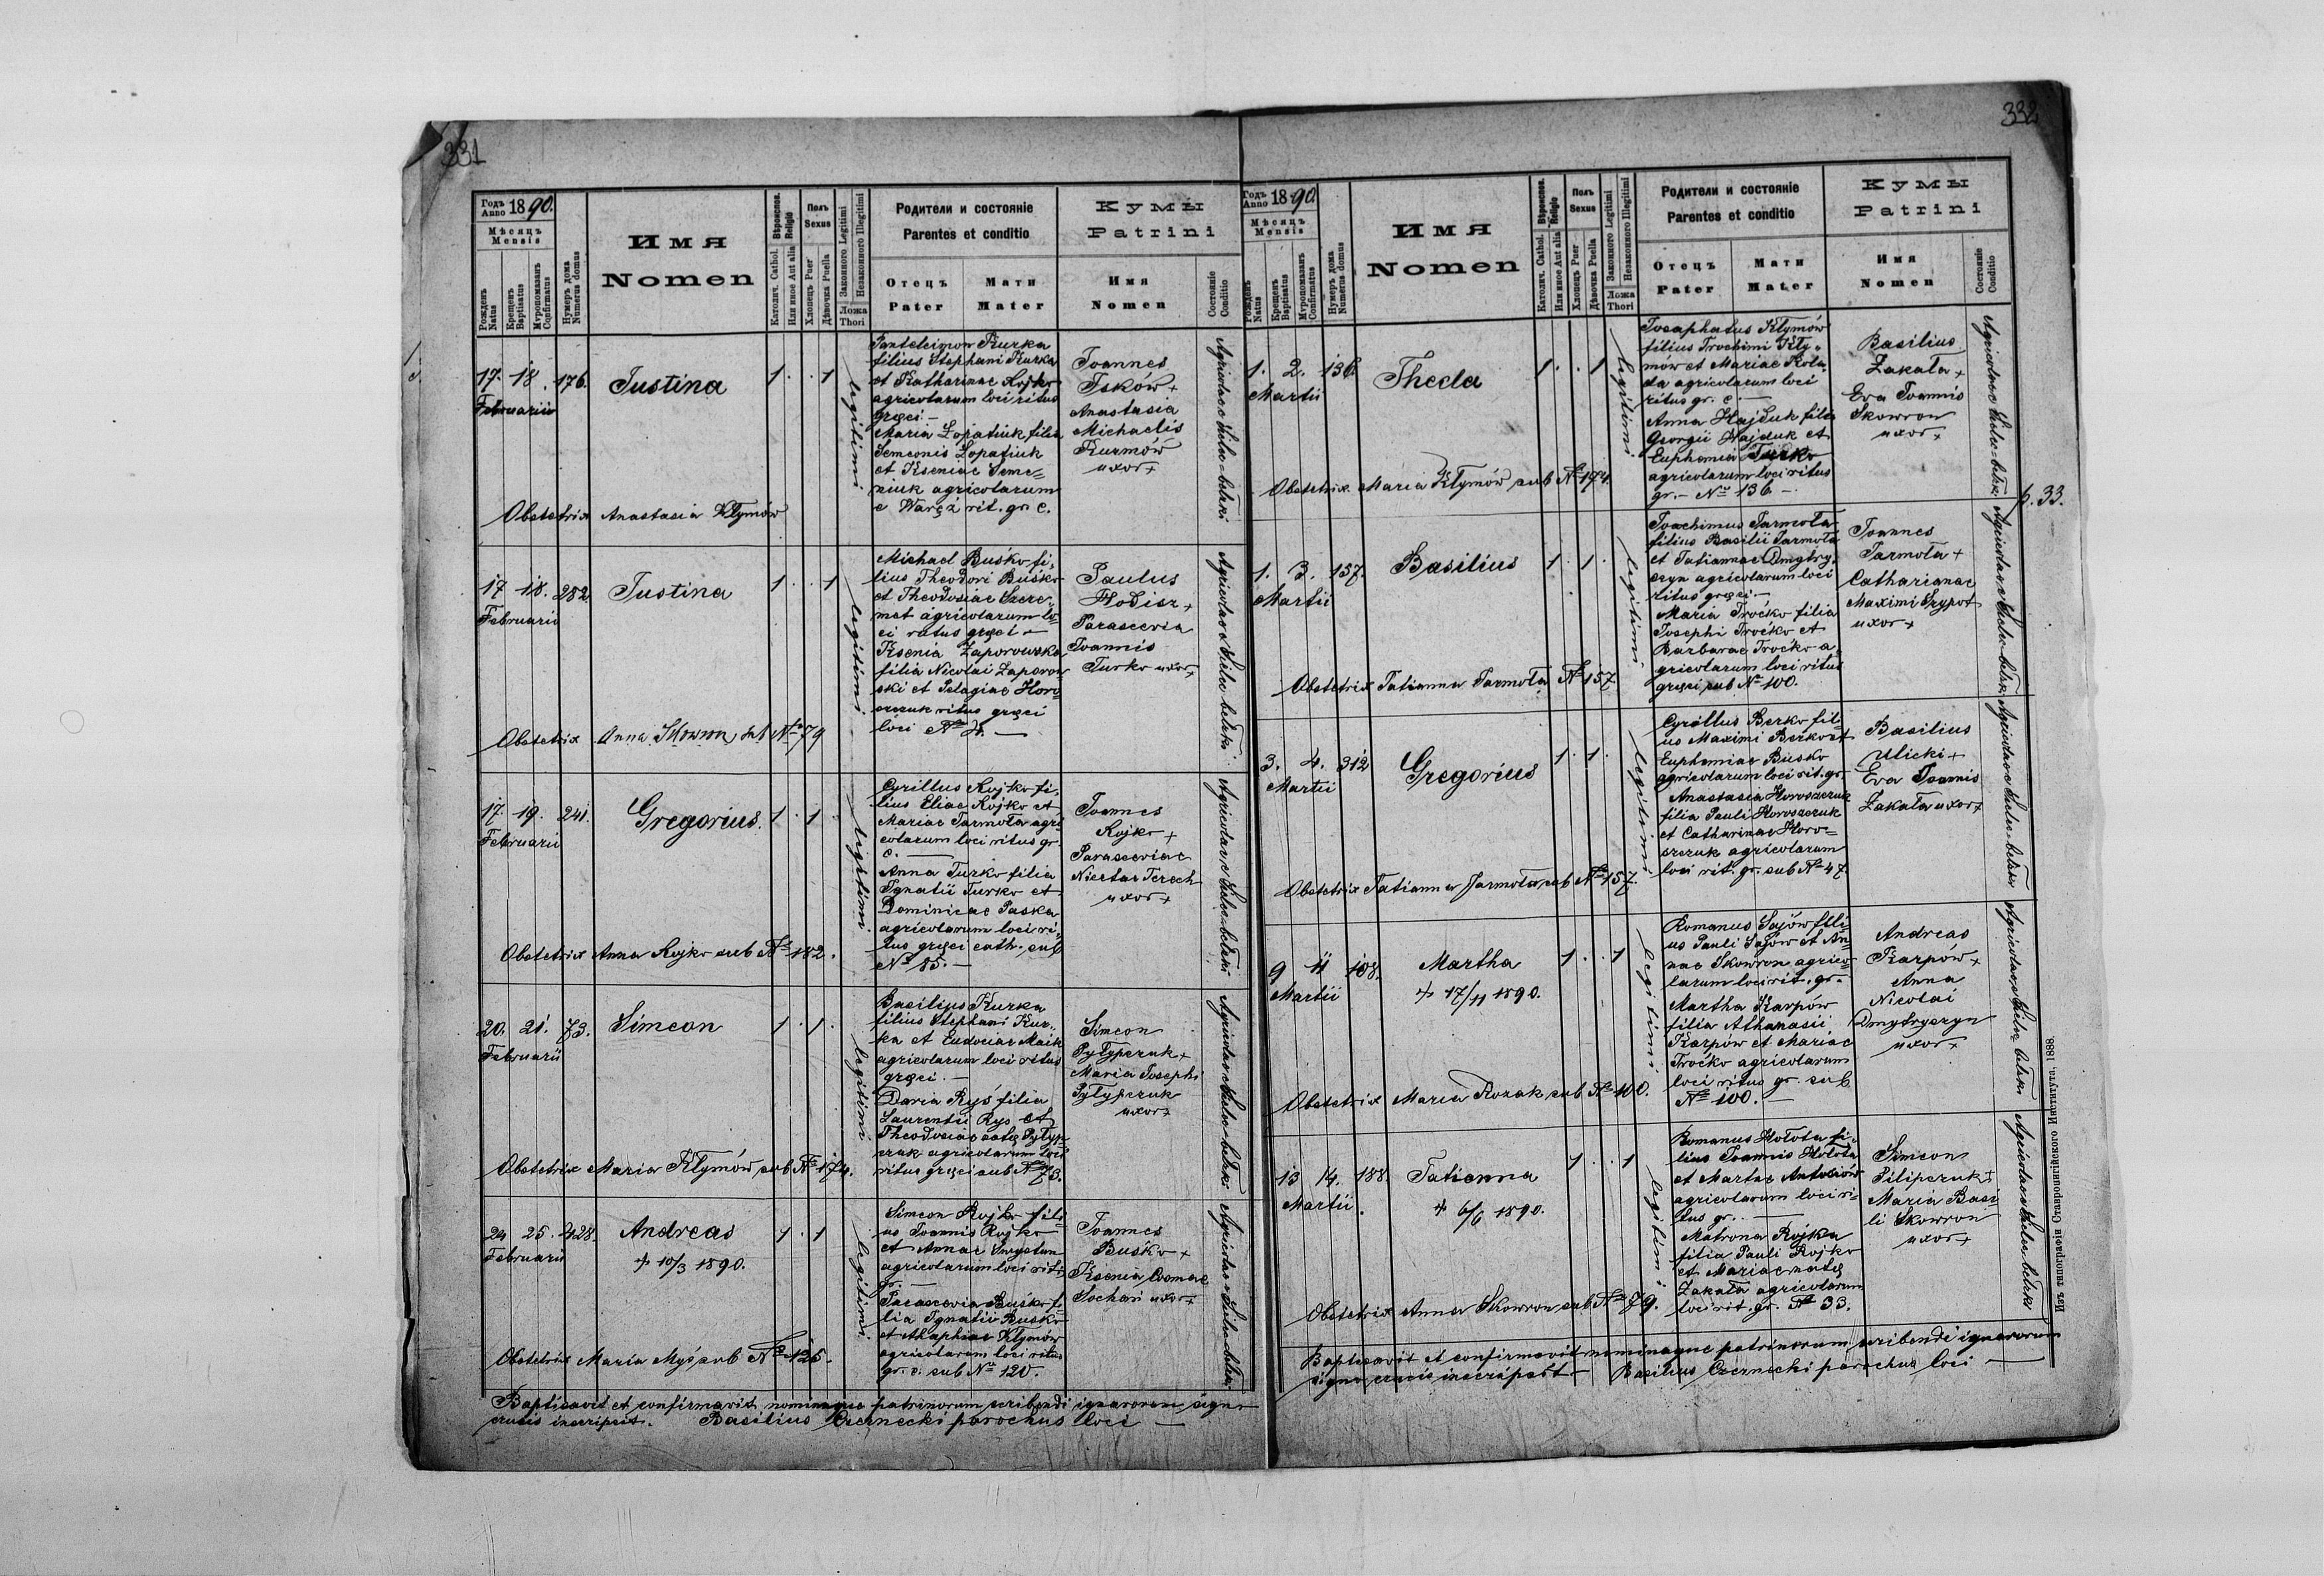 331
Годъ
Anno 1890.
Мѣсяцъ
Mensis
Рожденъ
Natus
Крещенъ
Baptisatus
Мѵропомазанъ
Confirmatus
Нумеръ дома
Numerus domus
Имя
Nomen
Вѣроиспов.
Religio
Католич. Cathol.
Или иное Aut alia
Полъ
Sexus
Хлопецъ Puer
Дѣвочка Puella
Законного Legitimi
Незаконного Illegitimi
Ложа
Thori
Родители и состояніе
Parentes et conditio
Отецъ
Pater
Мати
Mater
Кумы
Patrini
Имя
Nomen
Состояніе
Conditio
17. 18. 176.
Februarii
Justina
1 . . 1
legitimi
Panteleimon Kurka
filius Stephani Kurka
et Katharinae Rojko
agricolarum loci ritus
gręci —
Maria Łopatiuk filia
Semeonis Łopatiuk
et Kseniae Seme=
niuk agricolarum
e Waręż rit. gr. c.
Joannes
Jsków +
Anastasia
Michaelis
Kurmów
uxor +
Obstetrix Anastasia Kłymów
17 18. 282.
Februarii
Justina
1 . . 1
legitimi
Michael Buśko fi,
lius Theodori Buśko
et Theodosiae Szere,
met agricolarum lo=
ci ritus gręci —
Ksenia Zaporowska
filia Nicolai Zaporow
ski et Pelagiae Horo
szczuk ritus gręci
loci
Paulus
Hodisz +
Parascevia
Joannis
Turko uxor +
Obstetrix Anna Skowron sub № 79
17. 19. 241.
Februarii
Gregorius.
1 . 1 .
legitimi
Cyrillus Rojko fi,
lius Eliae Rojko et
Mariae Jarmoła agri
colarum loci ritus gr.
c. —
Anna Turko filia
Ignatii Turko et
Dominicae Paska
agricolarum loci ri,
tus gręci cath. sub
№ 85. —
Joannes
Rojko +
Parasceviae
Nicetae Terech
uxor +
Obstetrix Anna Rojko sub № 182.
20. 21. 73.
Februarii
Simeon
1 . 1 .
legitimi
Basilius Kurka
filius Stephani Kur,
ka et Eudociae Maik
agricolarum loci ritus
gręci. —
Daria Ryś filia
Laurentii Rys et
Theodosiae natę Pyłyp
czuk agricolarum loci
ritus gręci sub № 73.
Simeon
Pyłypczuk +
Maria Josephi
Pyłypczuk
uxor +
Obstetrix Maria Kłymów sub № 174.
24 25. 428.
Februarii
Andreas
+ 10/3 1890.
1 . 1
legitimi
Simeon Rojko fili=
us Joannis Rojko
et Annae
agricolarum loci rit.
gr. —
Parascevia Buśko fi
lia Ignatii Busko
et Ahaphiae Kłymów
agricolarum loci ritus
gr. c. sub № 120.
Joannes
Buśko +
Ksenia Cosmae
Sochań uxor +
Obstetrix Maria Myś sub № 125.
Baptisavit et confirmavit nominaque patrinorum scribendi ignarorum signo
crucis inscripsit. Basilius Czernecki parochus loci —
332
Годъ
Anno 1890.
Мѣсяцъ
Mensis
Рожденъ
Natus
Крещенъ
Baptisatus
Мѵропомазанъ
Confirmatus
Нумеръ дома
Numerus domus
Имя
Nomen
Вѣроиспов.
Religio
Католич. Cathol.
Или иное Aut alia
Полъ
Sexus
Хлопецъ Puer
Дѣвочка Puella
Законного Legitimi
Незаконного Illegitimi
Ложа
Thori
Родители и состояніе
Parentes et conditio
Отецъ
Pater
Мати
Mater
Кумы
Patrini
Имя
Nomen
Состояніе
Conditio
1. 2. 136
Martii
Thecla
1 . . 1
legitimi
Josaphatus Kłymów
filius Trochimi Kły,
mów et Mariae Kola,
da agricolarum loci
ritus gr. c. —
Anna Hajduk filia
Georgii Hajduk et
Euphemia Turko
agricolarum loci ritus
gr. — № 136 —
Basilius
Zakała +
Eva Joannis
Skowron
uxor +
Obstetrix Maria Kłymów sub № 174.
p. 33.
1. 3. 157.
Martii
Basilius
1 . 1 .
legitimi
Joachimus Jarmoła
filius Basilii Jarmoła
et Tatiannae Dmytry,
czyn agricolarum loci
ritus gręci —
Maria Troćko filia
Josephi Troćko et
Barbarae Troćko a,
gricolarum loci ritus
gręci sub № 100.
Joannes
Jarmoła +
Catharinae
Maximi
uxor +
Obstetrix Tatianna Jarmoła № 157
3. 4. 312
Martii
Gregorius
1 . 1 .
legitimi
Cyrillus Berko fili
us Maximi Berko et
Euphemiae Busko
agricolarum loci rit. gr.
Anastasia Horoszczuk
filia Pauli Horoszczuk
et Catharinae Horo=
szczuk agricolarum
loci rit. gr. sub № 47.
Basilius
Ulicki +
Eva Joannis
Zakała uxor +
Obstetrix Tatianna Jarmoła sub № 157.
9 11 108.
Martii
Martha
+ 17/11 1890.
1 . . 1
legitimi
Romanus Sajów fili=
us Pauli Sajów et An=
nae Skowron agrico=
larum loci rit. gr.
Martha Karpów
filia Athanasii
Karpów et Mariae
Troćko agricolarum
loci ritus gr. sub
№ 100. —
Andreas
Karpów +
Anna
Nicolai
Dmytryczyn
uxor +
Obstetrix Maria Kozak sub № 100.
13 14. 188.
Martii.
Tatianna
+ 6/6 1890.
1 . . 1
legitimi
Romanus Hołota fi,
lius Joannis Hołota
et Marthae Antoniów
agricolarum loci ri=
tus gr. —
Matrona Rojko
filia Pauli Rojko
et Mariae natę
Zakała agricolarum
loci rit. gr. № 33.
Simeon
Pilipczuk +
Maria Basi
li Skowron
uxor +
Obstetrix Anna Skowron sub № 79.
Baptisavit et confirmavit nominaque patrinorum scribendi ignarorum
signo crucis inscripsit — Basilius Czernecki parochus loci —
Изъ типографіи Ставропигійского Института, 1888.